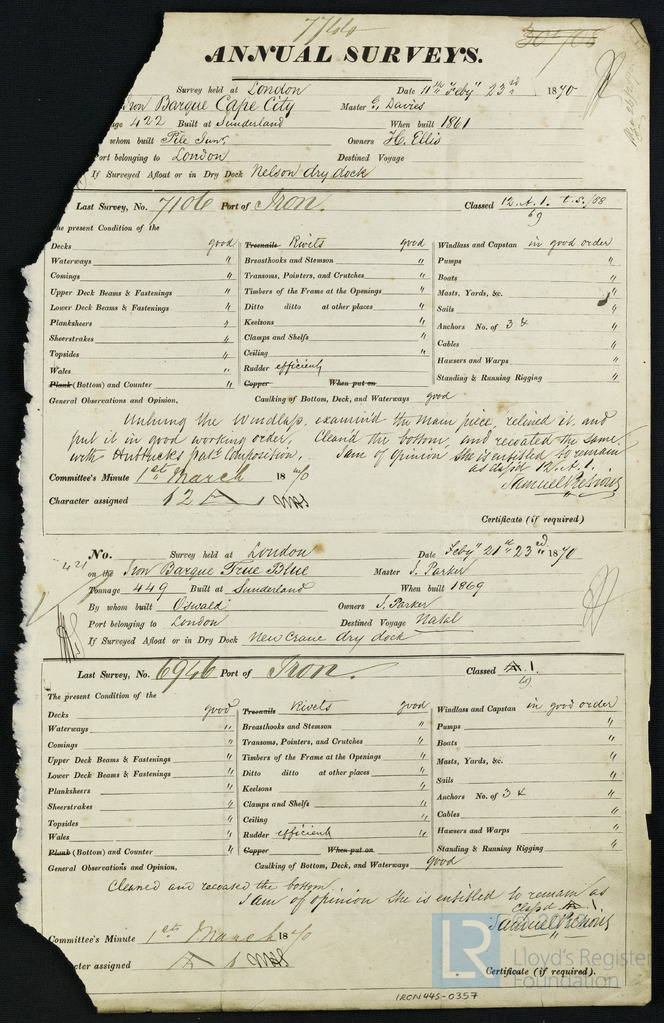 7744
ANNUAL SURVEYS.
Survey held at London Date 11th Feby 23rd 1870
Iron Barque Cape City Master G. Davies
422 Built at Sunderland When built 1861
whom built Pile Junr Owners H. Ellis
Port belonging to London Destined Voyage
If Surveyed Afloat or in Dry Dock Nelson dry dock
Last Survey, No. 7106 Port of Iron. Classed 12.A.1. t.s./68
69
The present Condition of the
Decks good Treenails Rivets good Windlass and Capstan in good order
Waterways " Breasthooks and Stemson " Pumps "
Comings " Transoms, Pointers, and Crutches " Boats "
Upper Deck Beams & Fastenings " Timbers of the Frame at the Openings " Masts, Yards, &c. "
Lower Deck Beams & Fastenings " Ditto ditto at other places " Sails "
Planksheers " Keelsons " Anchors No. of 3 & "
Sheerstrakes " Clamps and Shelfs " Cables "
Topsides " Ceiling " Hawsers and Warps "
Wales " Rudder efficient Standing & Running Rigging "
Plank (Bottom) and Counter " Copper When put on
General Observations and Opinion. Caulking of Bottom, Deck, and Waterways good
Unhung the Windlass, examin'd the main piece, relined it and
put it in good working order. Clean'd the bottom, and recoated the same
with Composition. I am of opinion she is entitled to remain
as class'd 12.A.1.
Committee's Minute 1st March 1870
Character assigned 12 A 1
Certificate (if required)
No. Survey held at London Date Feby 21st 23rd 1870
421 on the Iron Barque True Blue Master J. Parker
Tonnage 449 Built at Sunderland When built 1869
By whom built Oswald Owners J. Parker
Port belonging to London Destined Voyage Natal
If Surveyed Afloat or in Dry Dock New Crane dry dock
Last Survey, No. 6946 Port of Iron. Classed A 1.
69
The present Condition of the
Decks good Treenails Rivets good Windlass and Capstan in good order
Waterways " Breasthooks and Stemson " Pumps "
Comings " Transoms, Pointers, and Crutches " Boats "
Upper Deck Beams & Fastenings " Timbers of the Frame at the Openings " Masts, Yards, &c. "
Lower Deck Beams & Fastenings " Ditto ditto at other places " Sails "
Planksheers " Keelsons " Anchors No. of 3 & "
Sheerstrakes " Clamps and Shelfs " Cables "
Topsides " Ceiling " Hawsers and Warps "
Wales " Rudder efficient " Standing & Running Rigging "
Plank (Bottom) and Counter " Copper When put on
General Observations and Opinion. Caulking of Bottom, Deck, and Waterways good
Cleaned and recoated the bottom.
I am of opinion she is entitled to remain as
class'd A 1
Committee's Minute 1st March 1870
Character assigned A 1
Certificate (if required).
LR Lloyd's Register
Foundation
IRON445-0357